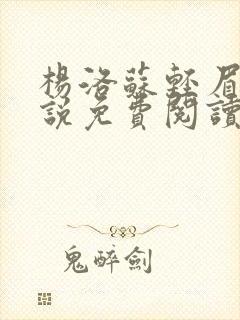 楊洛蘇輕眉
說免費閱讀
鬼醉劍